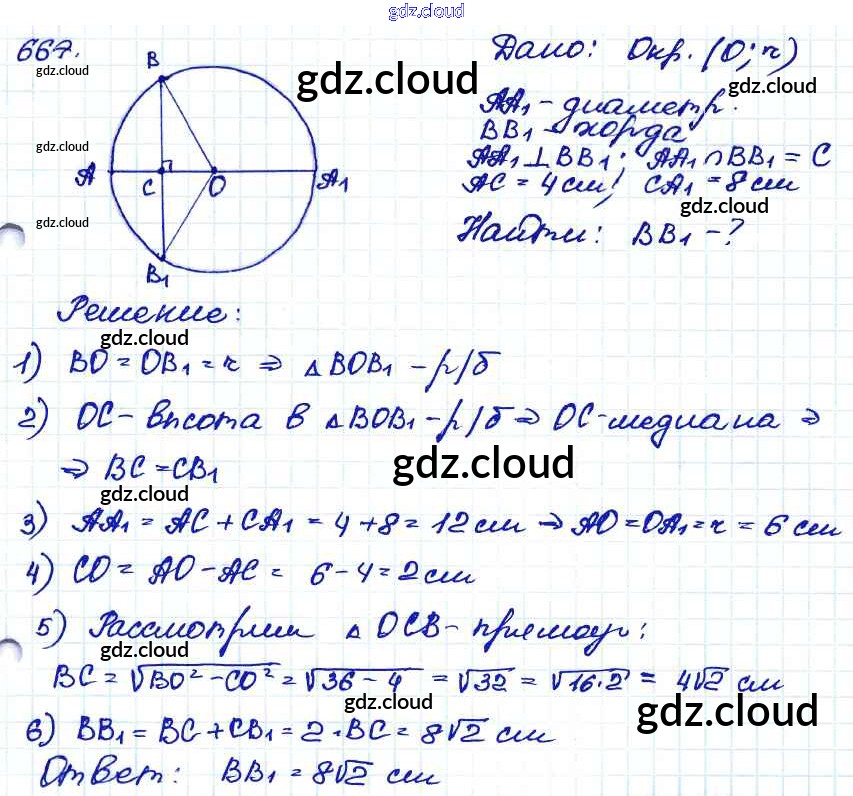 gdz.cloud
667.
Дано: Окр. (O; r)
gdz.cloud
gdz.cloud
gdz.cloud
AA₁ - диаметр.
BB₁ - хорда
AA₁ ⊥ BB₁; AA₁ ∩ BB₁ = C
AC = 4 см; CA₁ = 8 см
gdz.cloud
gdz.cloud
gdz.cloud
Найти: BB₁ - ?
B
A
C
O
A₁
B₁
Решение:
gdz.cloud
1) BO = OB₁ = r ⇒ △BOB₁ - р/б
2) OC - высота в △BOB₁ - р/б ⇒ OC - медиана ⇒
⇒ BC = CB₁
gdz.cloud
gdz.cloud
3) AA₁ = AC + CA₁ = 4 + 8 = 12 см ⇒ AO = OA₁ = r = 6 см
4) CO = AO - AC = 6 - 4 = 2 см
5) Рассмотрим △OCB - прямоуг:
gdz.cloud
BC = √BO² - CO² = √36 - 4 = √32 = √16·2 = 4√2 см
gdz.cloud
gdz.cloud
6) BB₁ = BC + CB₁ = 2·BC = 8√2 см
gdz.cloud
Ответ: BB₁ = 8√2 см